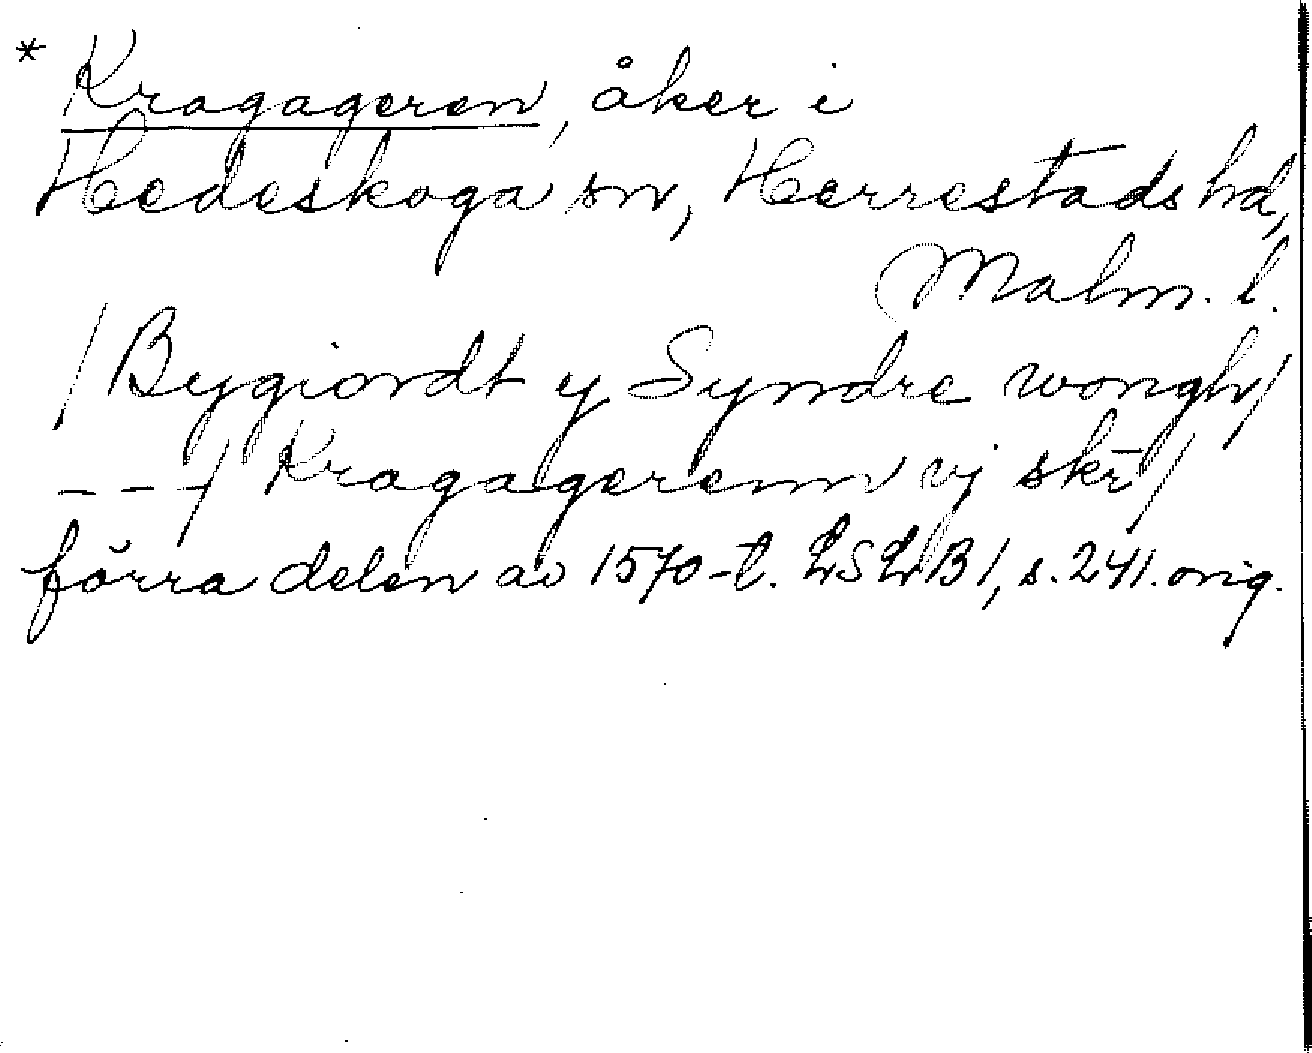 * Kragageren, åker i
Hedeskoga sn, Herrestads hd,
Malm. l.
/ Bygiordt y Syndre wongh /
- - - / Kragagerenn vj skr̄ /
förra delen av 1570-t. LSLB 1, s. 241. orig.